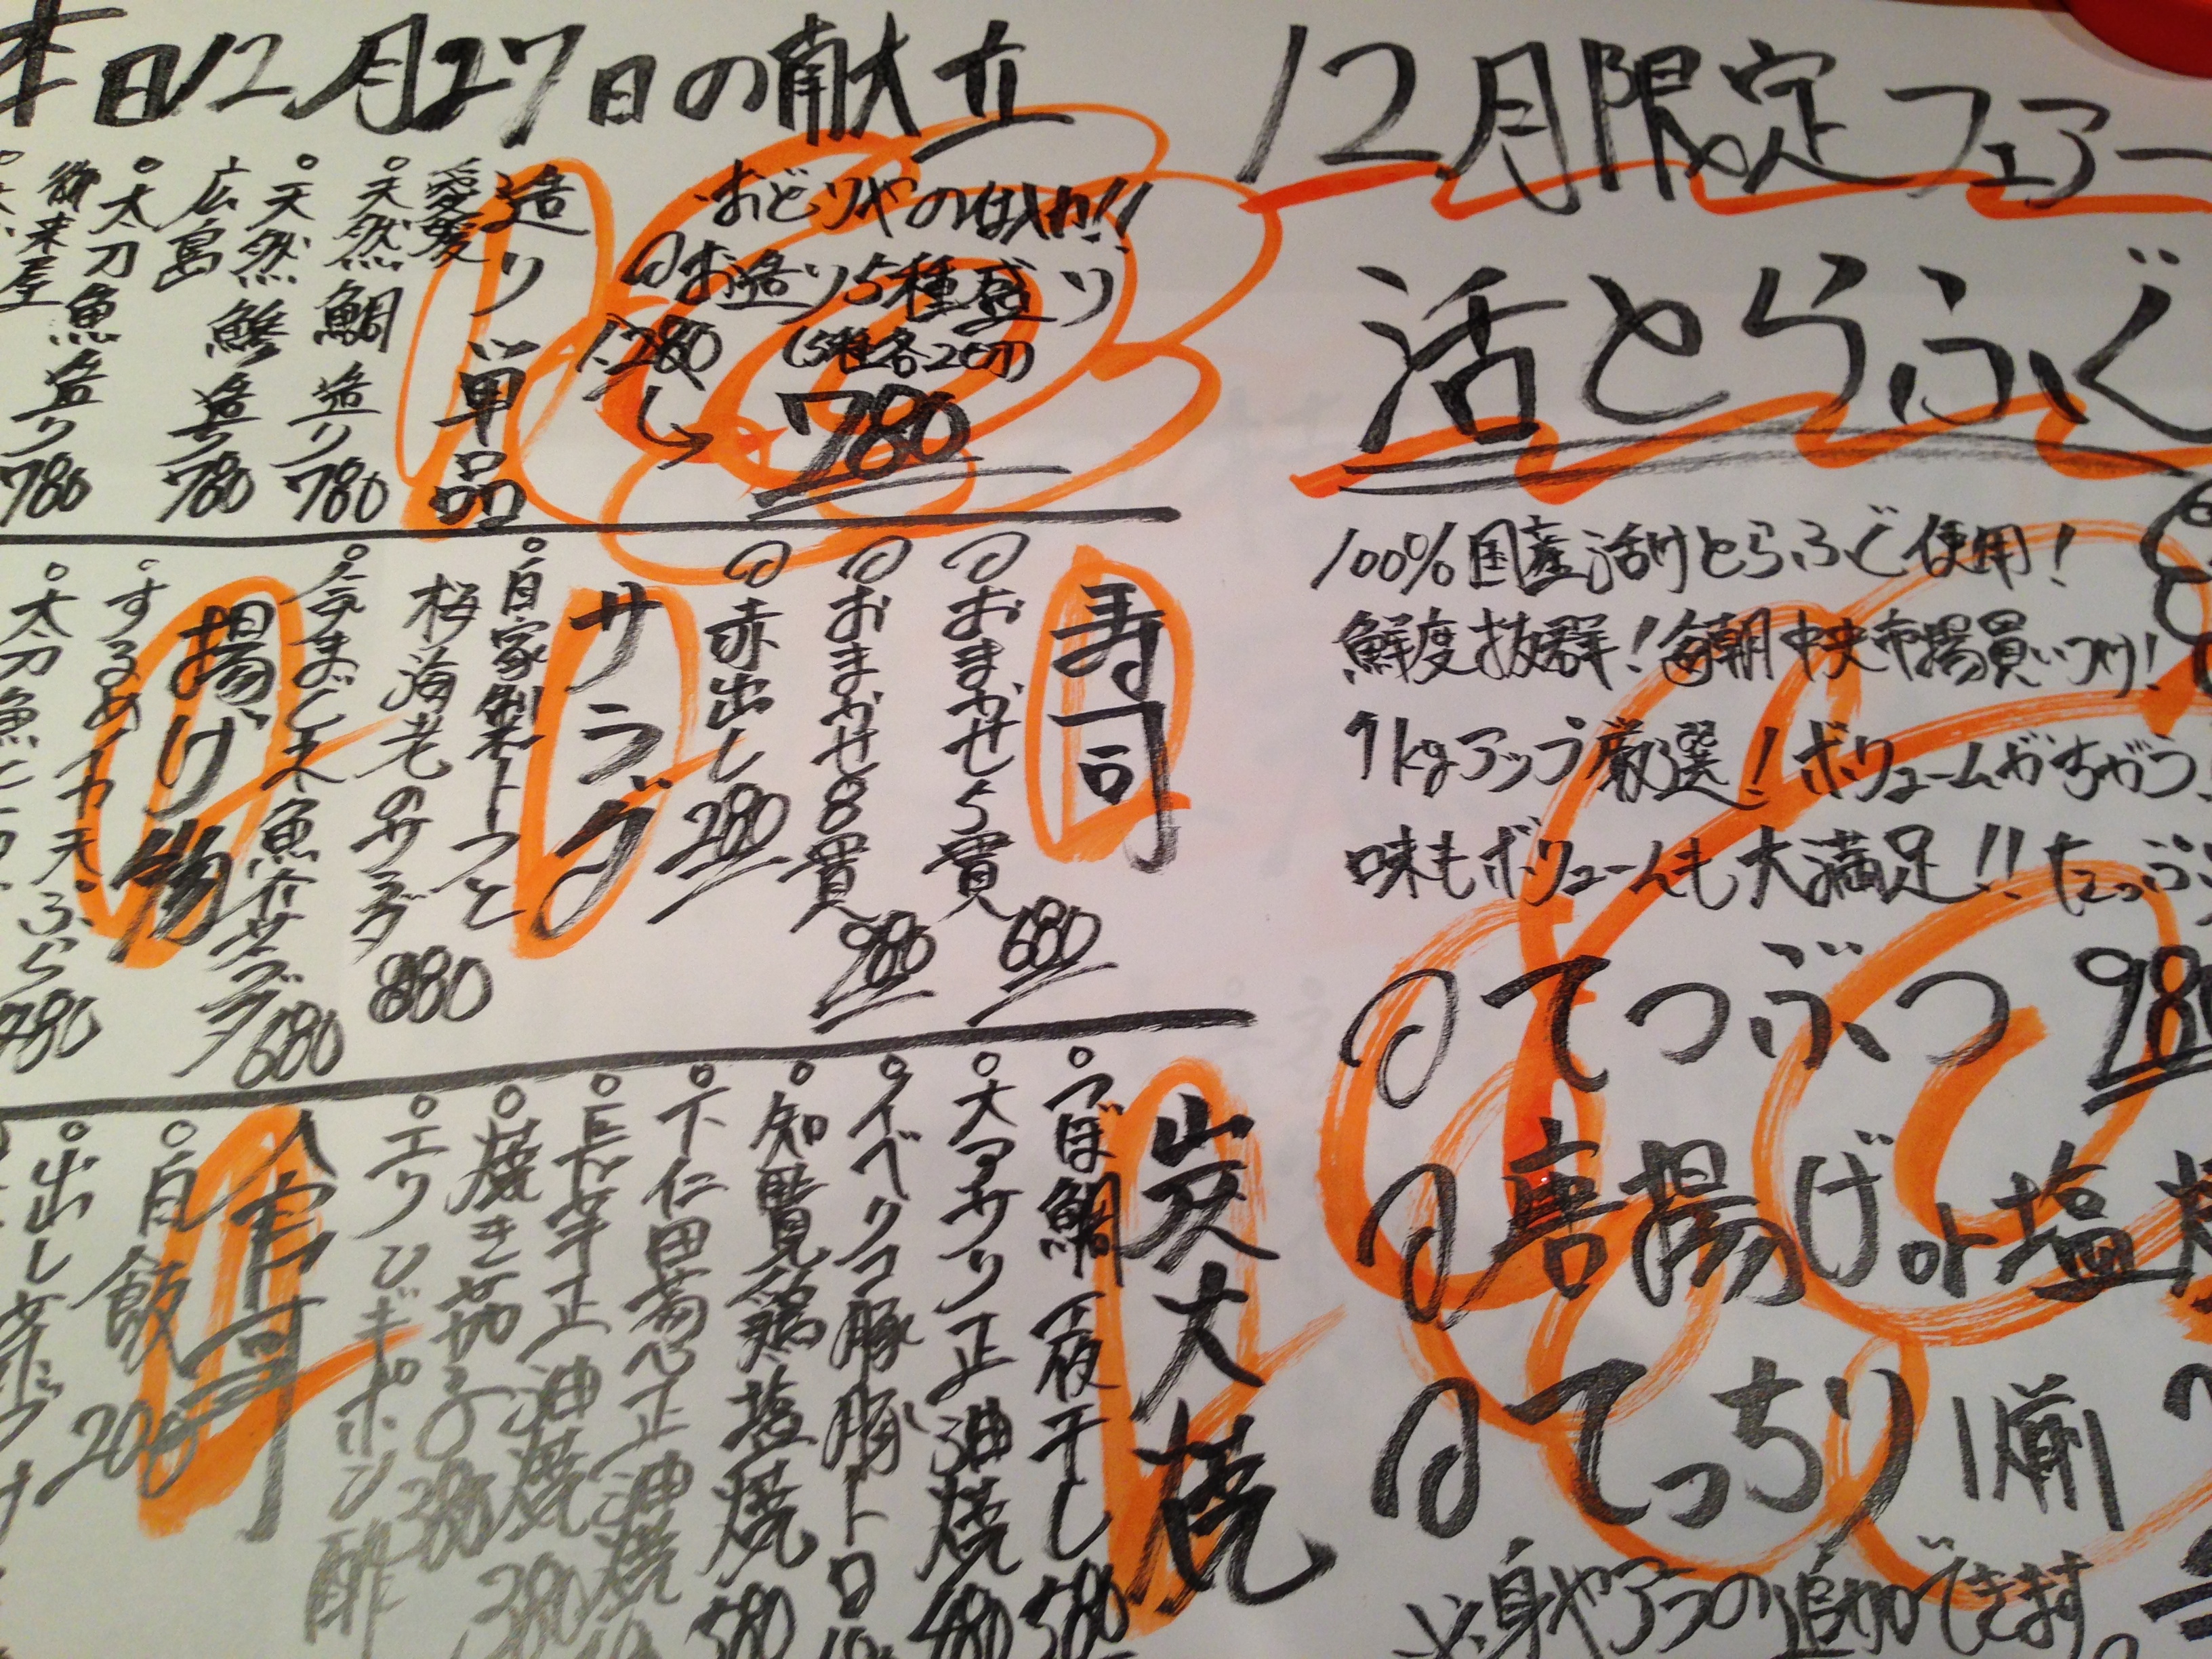 本日12月27日の献立
おどりやのはしり!!
お造り5種盛り
1.280
(5種各2切)
780
造り単品
愛媛
天然鯛造り780
天然鯵造り780
広島
太刀魚造り780
寿司
おまかせ5貫
680
おまかせ8貫
980
赤出し280
サラダ
自家製トマトと
梅海老のサラダ
880
今までどーり魚介サラダ
680
揚げ物
するめイカ天ぷら
780
太刀魚
炭火焼
つぼ鯛一夜干し580
大アサリ正油焼480
イベリコ豚豚トロ
知覧鶏塩焼580
下仁田葱正油焼
長芋正油焼380
焼き茄子380
エリンギポン酢
食事
白飯200
出し
12月限定フェアー
活とらふぐ
100%国産活けとらふぐ使用!
鮮度抜群!毎朝中央市場買いつけ!
1kgアップ厳選!ボリュームがちがう!
味もボリュームも大満足!!たっぷり
てつぶつ 980
唐揚げor塩
てっちり 1人前
※身やアラの追加できます。